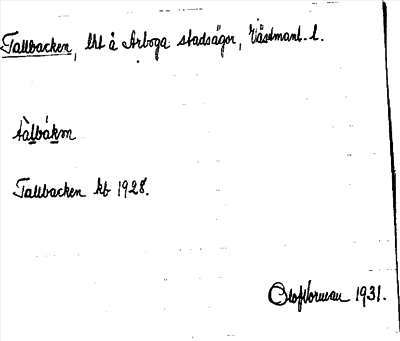 Tallbacken, lht å Arboga stadsägor, Västmanl. l.
tàlbákɐn
Tallbacken kb 1928.
Olof Norman 1931.